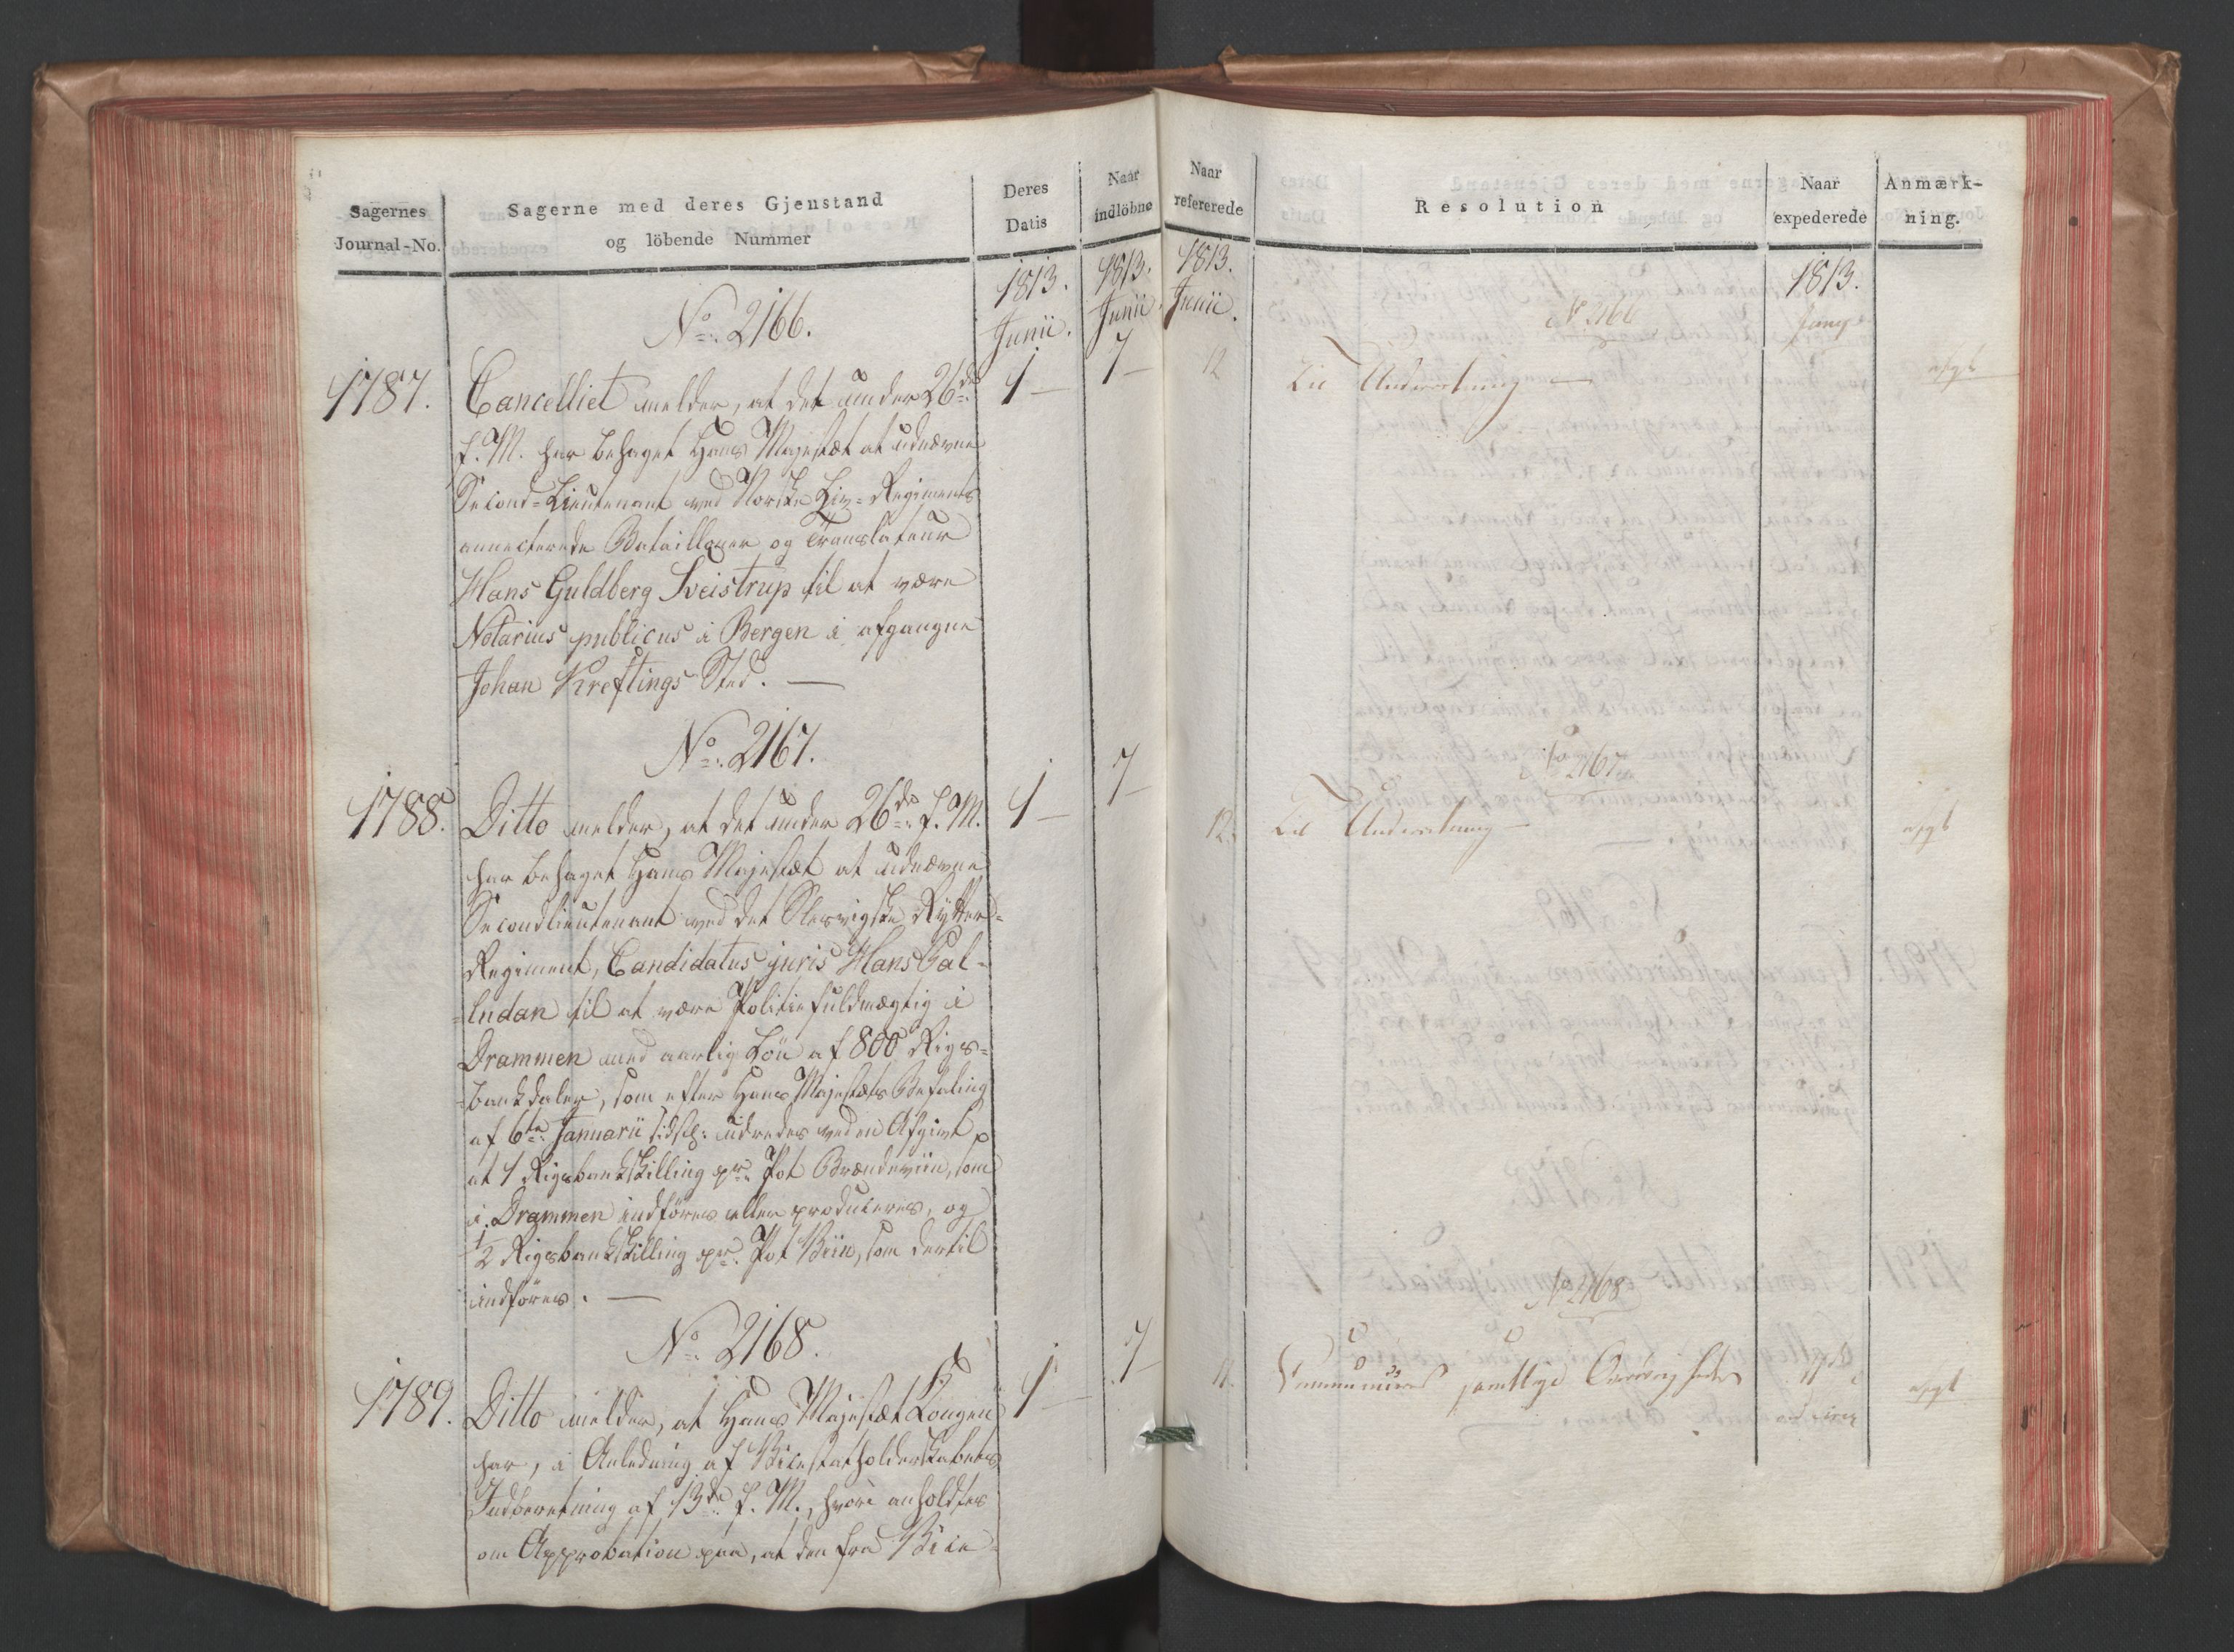 Sagernes
Journal-No.
Sagerne med deres Gjenstand
og löbende Nummer
Deres
Datis
Naar
indlöbne
1813.
Junii.
1813.
Junii.
No. 2166.
1787.
Cancelliet melder, at det under 26de
1 —
7 —
f. M. har behaget Hans Majestæt at udnævne
Second-Lieutenant ved Norske Liv-Regiments
annecterede Batailloner og Translateur
Hans Guldberg Sveistrup til at være
Notarius publicus i Bergen i afgangne
Johan Kreftings Sted. —
No. 2167.
1788.
Ditto melder, at det under 26de f. M.
1 —
7 —
har behaget Hans Majestæt at udnævne
Secondlieutenant ved det Slesvigske Rytter-
Regiment, Candidatus juris Hans Pal-
-ludan til at være Politiefuldmægtig i
Drammen med aarlig Lön af 800 Rigs-
-bankdaler, som efter Hans Majestæts Befaling
af 6te Januarii sidstl: udredes ved en Afgivt
at 1 Rigsbankskilling pr. Pot Brændeviin, som
i Drammen indföres eller produceres, og
1/2 Rigsbankskilling pr. Pot Viin, som dertil
indföres. —
No. 2168.
1789.
Ditto melder, at Hans Majestæt Kongen
1 —
7 —
har, i Anledning af Vicestatholderskabets
Indberetning af 13de f. M., hvori anholdtes
om Approbation paa, at den fra Vice-
Naar
refererede
Resolution
Naar
expederede
Anmærk-
ning.
1813.
Junii.
1813.
No 2166
12
Til Underretning —
No 2167
12.
Til Underretning —
No 2168
11.
Communiceres samtlige Övrigheder
17